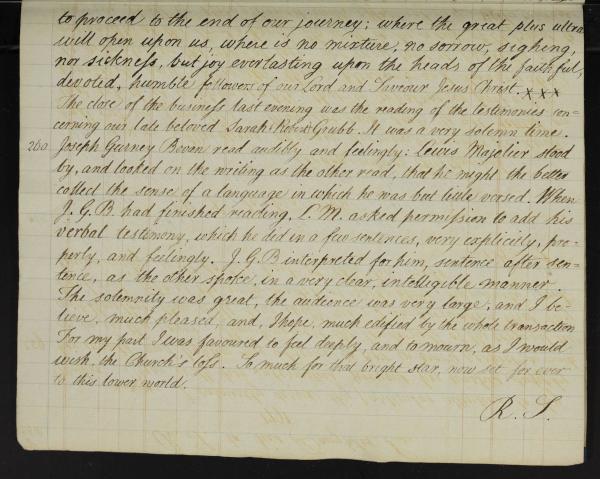 to proceed to the end of our journey; where the great plus ultra
will open upon us, where is no mixture, no sorrow, sighing,
nor sickness, but joy everlasting upon the heads of the faithful,
devoted, humble followers of our Lord and Saviour Jesus Christ. xxx
The close of the business last evening was the reading of the testimonies con=
cerning our late beloved Sarah & Robert Grubb. It was a very solemn time.
260 Joseph Gurney Bevan read audibly and feelingly; Lewis Majolier stood
by, and looked on the writing as the other read, that he might the better
collect the sense of a language in which he was but little versed. When
J. G. B. had finished reading, L. M. asked permission to add his
verbal testimony, which he did in a few sentences, very explicitly, pro=
perly, and feelingly. J. G. B interpreted for him, sentence after sen=
tence, as the other spoke, in a very clear, intelligible manner.
The solemnity was great, the audience was very large, and I be=
lieve, much pleased, and, I hope, much edified by the whole transaction
For my part I was favoured to feel deeply, and to mourn, as I would
wish, the Church's loss. So much for that bright star, now set for ever
to this lower world.
R. S.